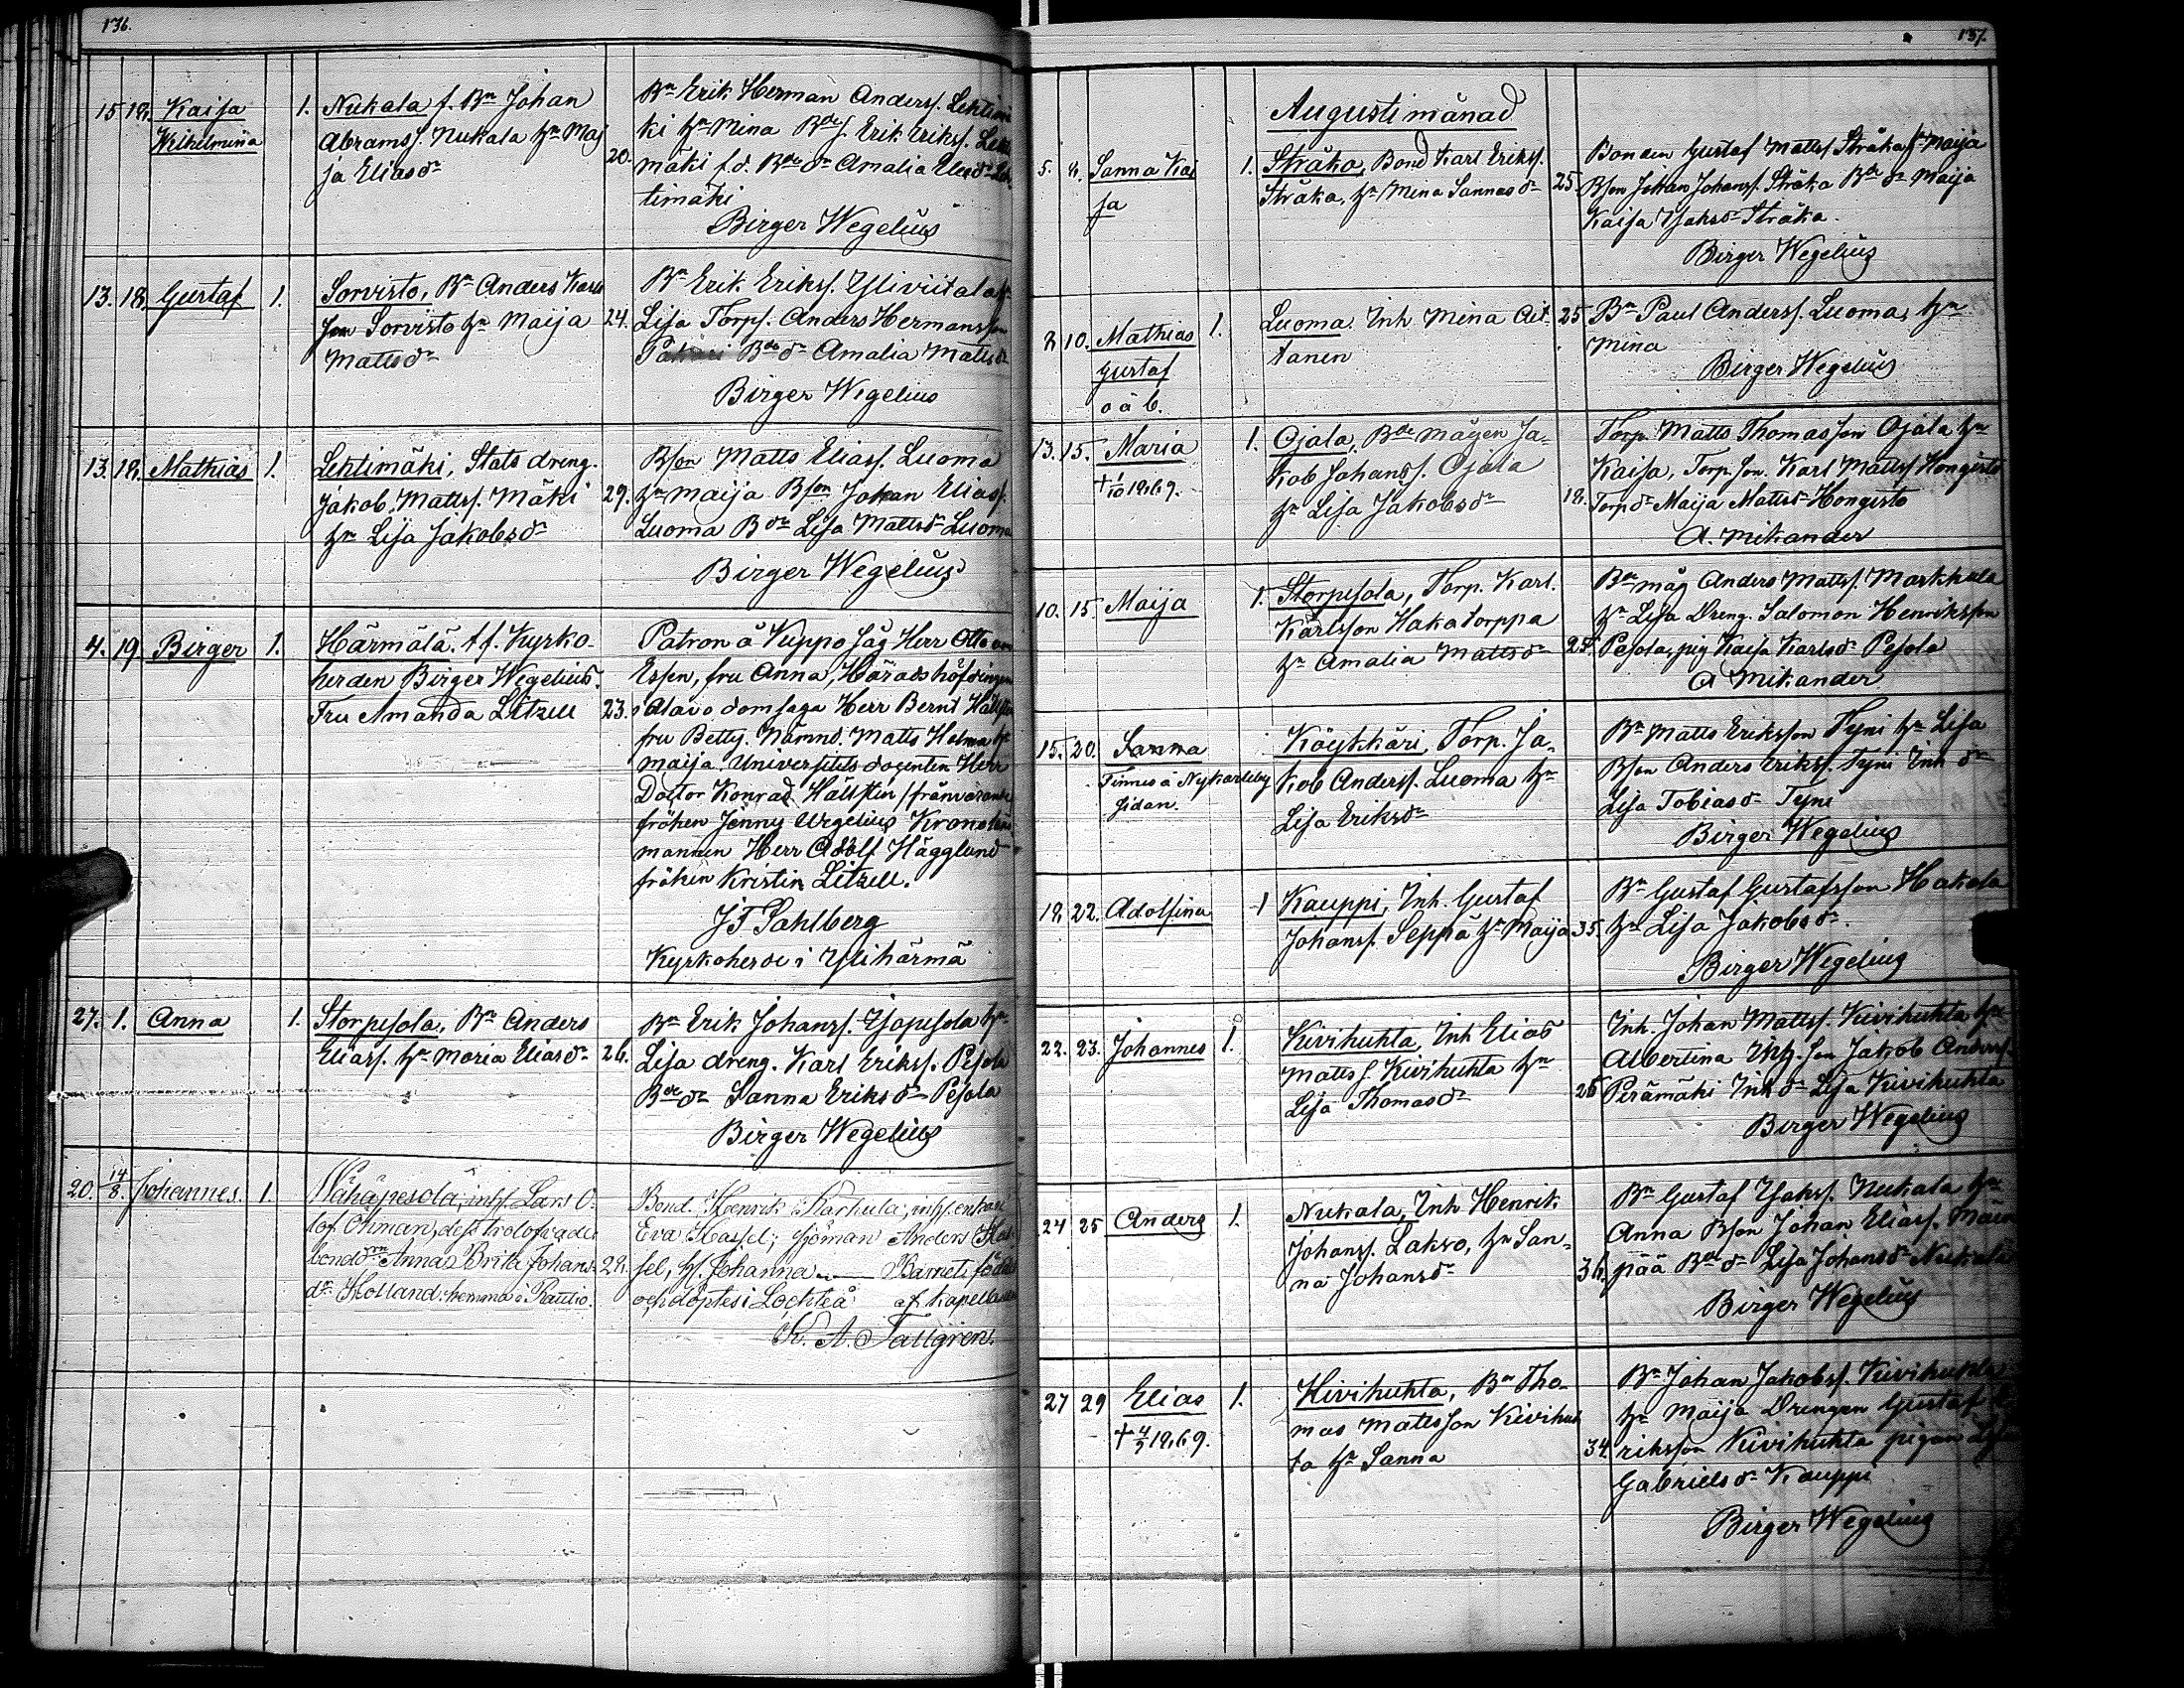 136.
15 18. Kaisa
Wilhelmina
1. Nukala f. Bn Johan
Abramss. Nukala hn Maj
ja Eliasdr
20.
Bn Erik Herman Anderss. Lehtimä
ki hn Mina Bdes. Erik Erikss. Leh
mäki f.d. Bde dr Amalia Eliasdr Leh
timäki
Birger Wegelius
13. 18. Gustaf 1.
Sorvisto, Bn Anders Karls
son Sorvisto hn Maija
Mattsdr
24.
Bn Erik Erikss. Yliviitala hn
Lisa Torps. Anders Hermansson
Bde dr Amalia Mattsdr
Birger Wegelius
13. 18. Mathias 1.
Lehtimäki, Statsdreng.
Jakob Mattss. Mäki
hn Lisa Jakobsdr
29.
Bson Matts Eliass. Luoma
hn Maija Bson Johan Eliass.
Luoma Bdr Lisa Mattsdr Luoma
Birger Wegelius
4. 19 Birger 1.
Härmälä. t.f. Kyrko-
herden Birger Wegelius.
Fru Amanda Litzell
23.
Patron å Kuppo såg Herr Otto von
Essen, fru Anna, Häradshöfdingen
i Alavo domsaga Herr Bernt Hällsten
fru Betty. Nämnd. Matts Holma hn
Maija. Universitets docenten Herr
Doctor Konrad Hällsten /frånvarande
fröken Jenny Wegelius Kronoläns
mannen Herr Adolf Hägglund
fröken Kristin Litzell.
J F Sahlberg
Kyrkoherde i Ylihärmä
27. 1. Anna
1. Storpesola, Bn Anders
Eliass. hn Maria Eliasdr
26.
Bn Erik Johanss. Yspesola hn
Lisa dreng. Karl Erikss. Pesola
Bde dr Sanna Eriksdr Pesola
Birger Wegelius
20. 14/8. Johannes. 1.
Wähäpesola, inhs. Lars O-
lof Öhman, dess trolofvade
bondedrn Anna Brita Johans-
dr Holland. hemma i Rautio.
28.
Bond. Henrik Karhula, inhs. enkan
Eva Hassel; sjöman Anders Has-
sel, h. Johanna — Barnet föddes
och döptes i Lochteå af kapellanen
K. A. Tallgren.
137.
Augusti månad
5. 8. Sanna Kai
sa
1. Sträka, Bond Karl Erikss.
Sträka, hn Mina Sannasdr
25.
Bonden Gustaf Mattss Sträka hn Maija
Bson Johan Johanss. Sträka Bde dr Maija
Kaisa Isaksdr Sträka.
Birger Wegelius
8 10. Mathias
Gustaf
o ä b.
1. Luoma. Inh Mina Ait-
tanen
25
Bn Paul Anderss. Luoma, hn
Mina
Birger Wegelius
13. 15. Maria
† 1/10 1869.
1. Ojala, Bde mågen Ja-
kob Johanss. Ojala
hn Lisa Jakobsdr
18.
Torp. Matts Thomasson Ojala hn
Kaisa, Torp. son. Karl Mattss Hongisto
Torp dr Maija Mattsdr Hongisto
A. Mikander
10. 15. Maija
1. Storpesola, Torp. Karl.
Karlsson Hakatorppa
hn Amalia Mattsdr
25.
Bde måg Anders Mattss. Markkula
hn Lisa Dreng. Salomon Henriksson
Pesola, pig Kaisa Karlsdr Pesola
A Mikander
15. 20. Sanna
Finnes å Nykarleby
sidan.
Köykkäri, Torp. Ja-
kob Anderss. Luoma hn
Lisa Eriksdr
Bn Matts Eriksson Tyni hn Lisa
Bson Anders Erikss. Tyni Inh dr
Lisa Tobiasdr Tyni
Birger Wegelius
18 22. Adolfina
1 Kauppi, Inh. Gustaf
Johanss. Seppä hn Maija 35.
Bn Gustaf Gustafsson Hakala
hn Lisa Jakobsdr.
Birger Wegelius
22. 23. Johannes 1.
Kivihuhta, Inh Elias
Mattss. Kivihuhta hn
Lisa Thomasdr
26
Inh. Johan Mattss. Kivihuhta hn
Albertina Inh. son Jakob Anderss.
Perämäki Inh dr Lisa Kivihuhta
Birger Wegelius
24 25 Anders 1.
Nukala, Inh Henrik
Johanss. Lakso, hn San-
na Johansdr
36.
Bn Gustaf Isakss. Nukala hn
Anna Bson Johan Eliass. Mäen
pää Bde dr Lisa Johansdr Nukala
Birger Wegelius
27 29 Elias 1.
† 4/2 1869.
Kivihuhta, Bn Tho-
mas Mattsson Kivihuh
ta hn Sanna
34.
Bn Johan Jakobss. Kivihuhta
hn Maija Drengen Gustaf E
riksson Kivihuhta pigan
Gabrielsdr Kauppi
Birger Wegelius